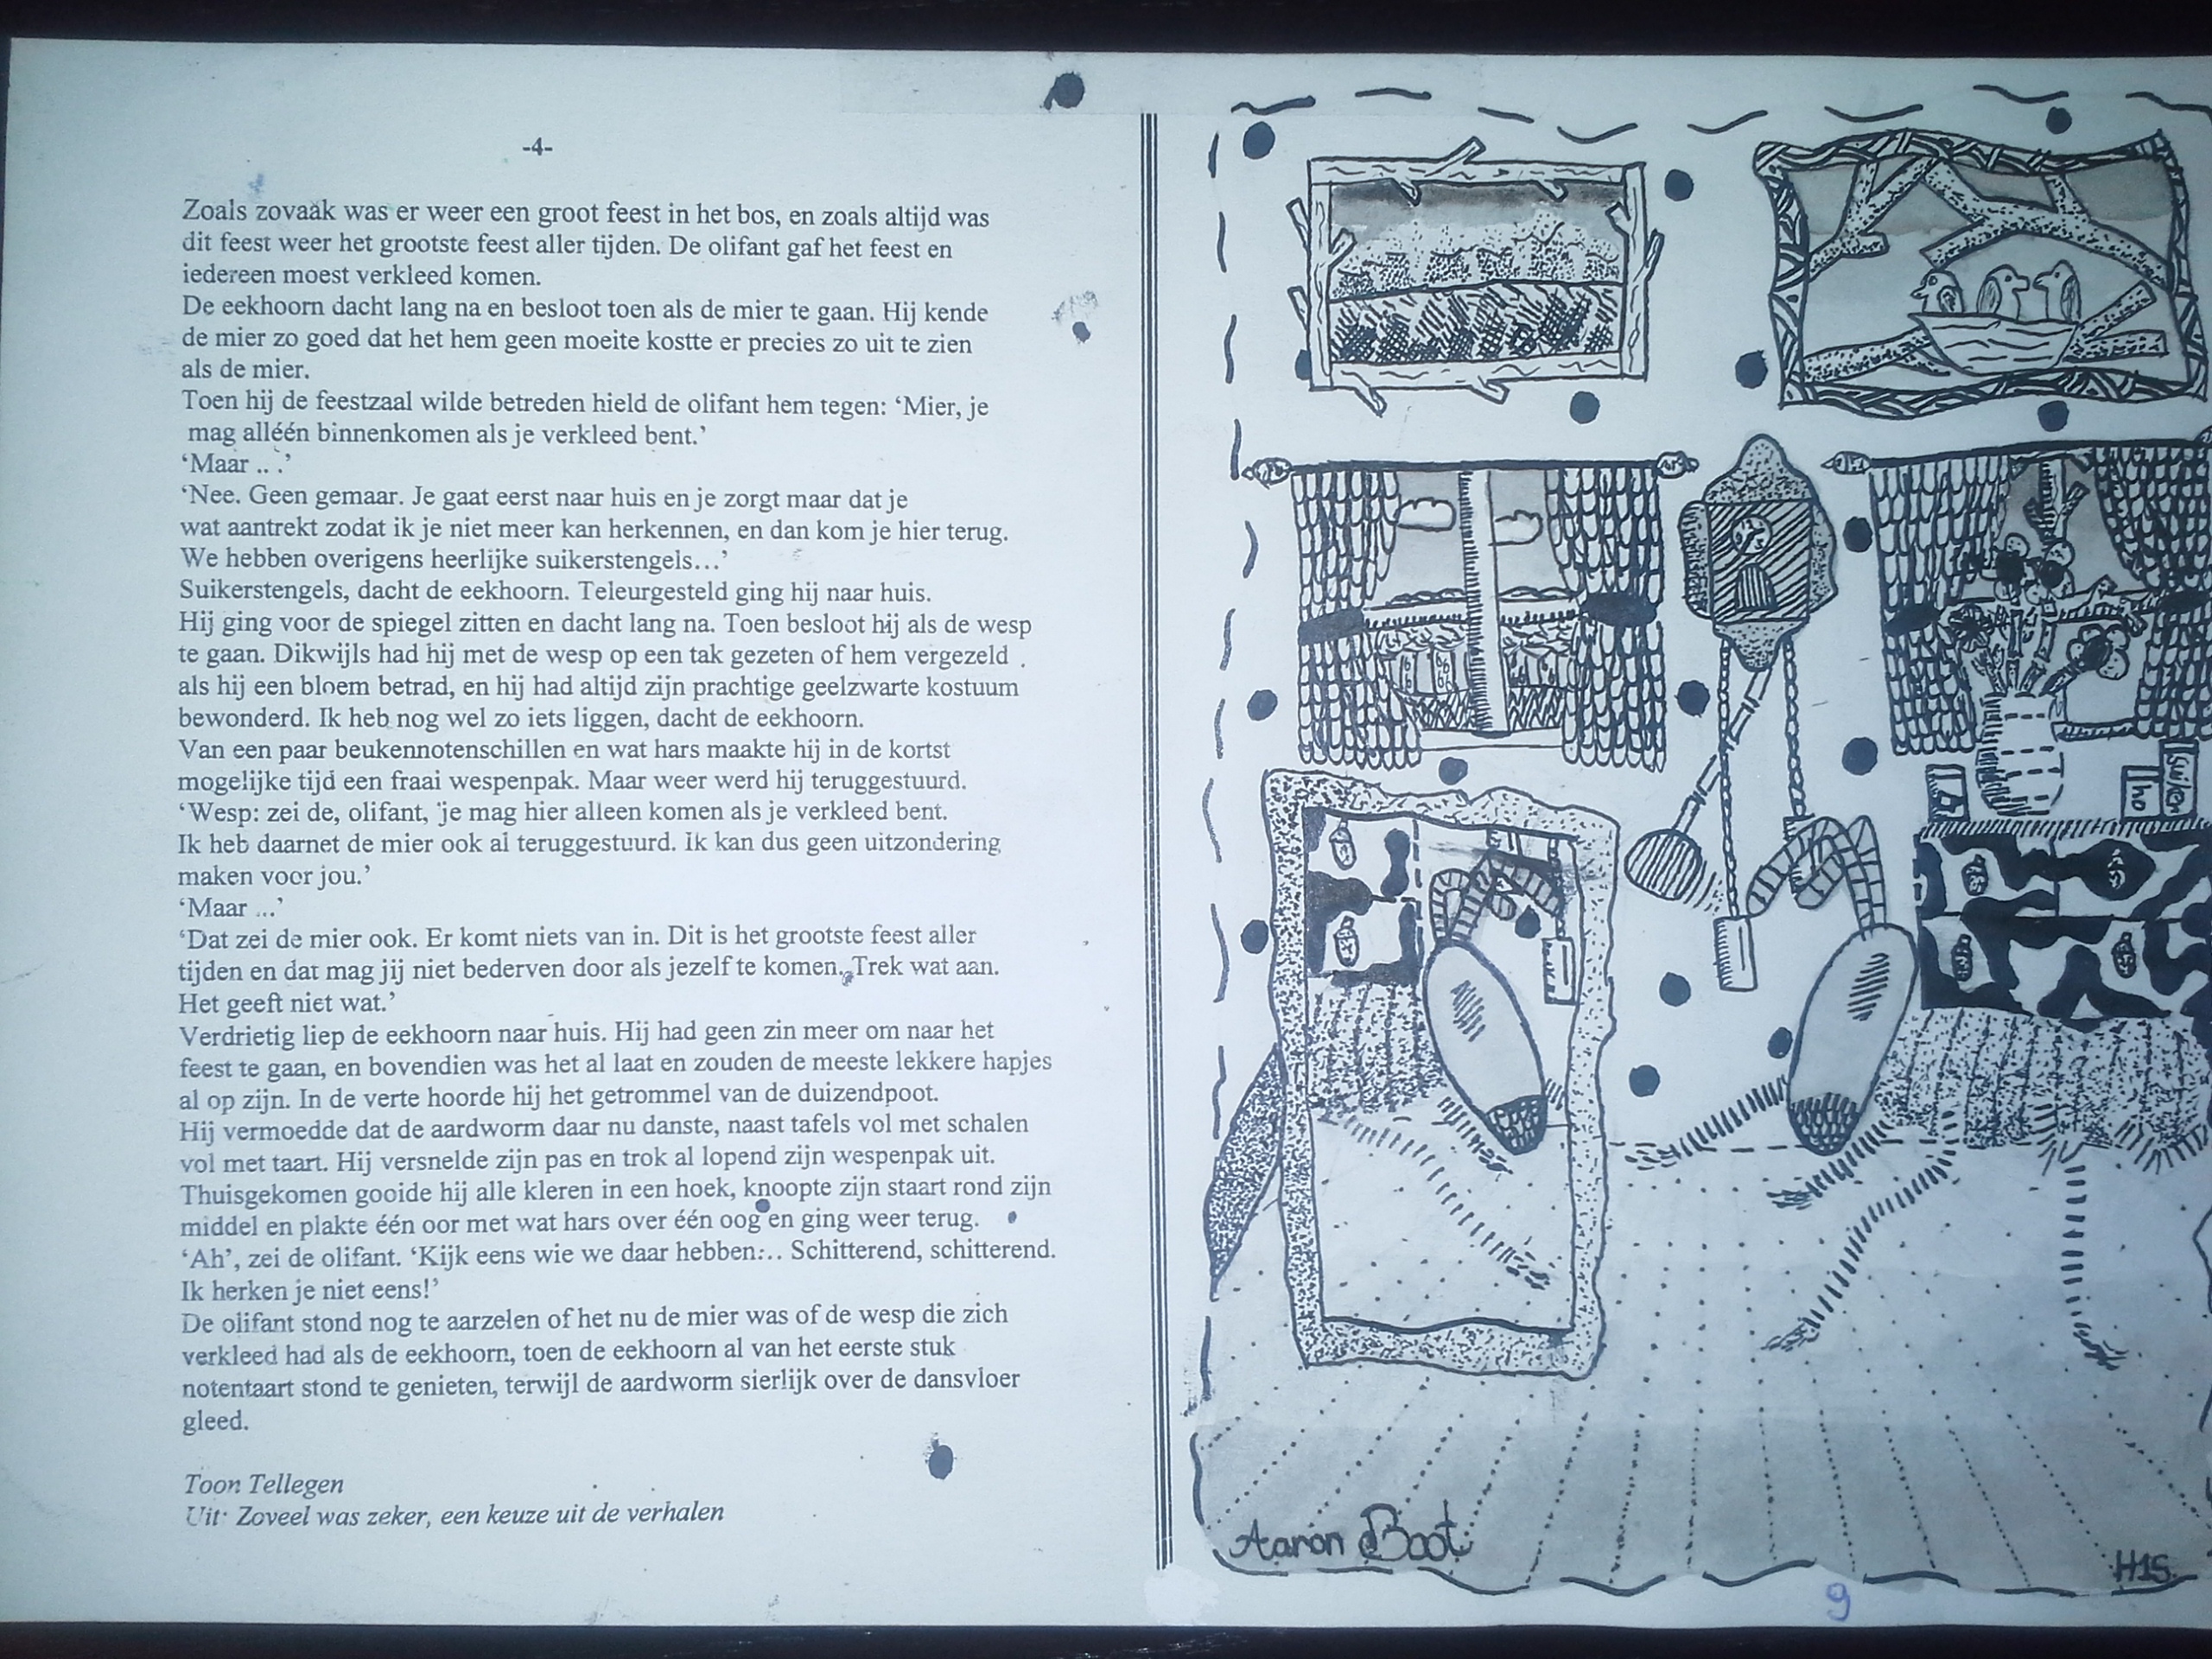 -4-
Zoals zovaak was er weer een groot feest in het bos, en zoals altijd was
dit feest weer het grootste feest aller tijden. De olifant gaf het feest en
iedereen moest verkleed komen.
De eekhoorn dacht lang na en besloot toen als de mier te gaan. Hij kende
de mier zo goed dat het hem geen moeite kostte er precies zo uit te zien
als de mier.
Toen hij de feestzaal wilde betreden hield de olifant hem tegen: ‘Mier, je
mag alléén binnenkomen als je verkleed bent.’
‘Maar .. .’
‘Nee. Geen gemaar. Je gaat eerst naar huis en je zorgt maar dat je
wat aantrekt zodat ik je niet meer kan herkennen, en dan kom je hier terug.
We hebben overigens heerlijke suikerstengels…’
Suikerstengels, dacht de eekhoorn. Teleurgesteld ging hij naar huis.
Hij ging voor de spiegel zitten en dacht lang na. Toen besloot hij als de wesp
te gaan. Dikwijls had hij met de wesp op een tak gezeten of hem vergezeld .
als hij een bloem betrad, en hij had altijd zijn prachtige geelzwarte kostuum
bewonderd. Ik heb nog wel zo iets liggen, dacht de eekhoorn.
Van een paar beukennotenschillen en wat hars maakte hij in de kortst
mogelijke tijd een fraai wespenpak. Maar weer werd hij teruggestuurd.
‘Wesp: zei de, olifant, 'je mag hier alleen komen als je verkleed bent.
Ik heb daarnet de mier ook al teruggestuurd. Ik kan dus geen uitzondering
maken voor jou.’
‘Maar ...’
‘Dat zei de mier ook. Er komt niets van in. Dit is het grootste feest aller
tijden en dat mag jij niet bederven door als jezelf te komen. Trek wat aan.
Het geeft niet wat.’
Verdrietig liep de eekhoorn naar huis. Hij had geen zin meer om naar het
feest te gaan, en bovendien was het al laat en zouden de meeste lekkere hapjes
al op zijn. In de verte hoorde hij het getrommel van de duizendpoot.
Hij vermoedde dat de aardworm daar nu danste, naast tafels vol met schalen
vol met taart. Hij versnelde zijn pas en trok al lopend zijn wespenpak uit.
Thuisgekomen gooide hij alle kleren in een hoek, knoopte zijn staart rond zijn
middel en plakte één oor met wat hars over één oog en ging weer terug.
‘Ah’, zei de olifant. ‘Kijk eens wie we daar hebben:.. Schitterend, schitterend.
Ik herken je niet eens!’
De olifant stond nog te aarzelen of het nu de mier was of de wesp die zich
verkleed had als de eekhoorn, toen de eekhoorn al van het eerste stuk
notentaart stond te genieten, terwijl de aardworm sierlijk over de dansvloer
gleed.
Toon Tellegen
Uit: Zoveel was zeker, een keuze uit de verhalen
Aaron Boot
H1S
9